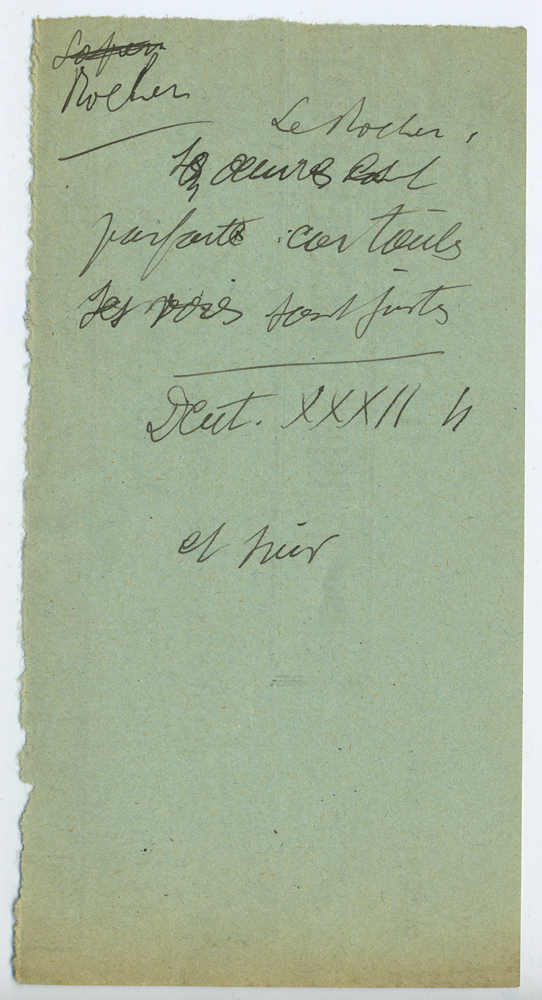 Rocher
Le Rocher,
Ses œuvres est
parfaite car toutes
Ses voies sont justes
Deut. XXXII 4
et suiv